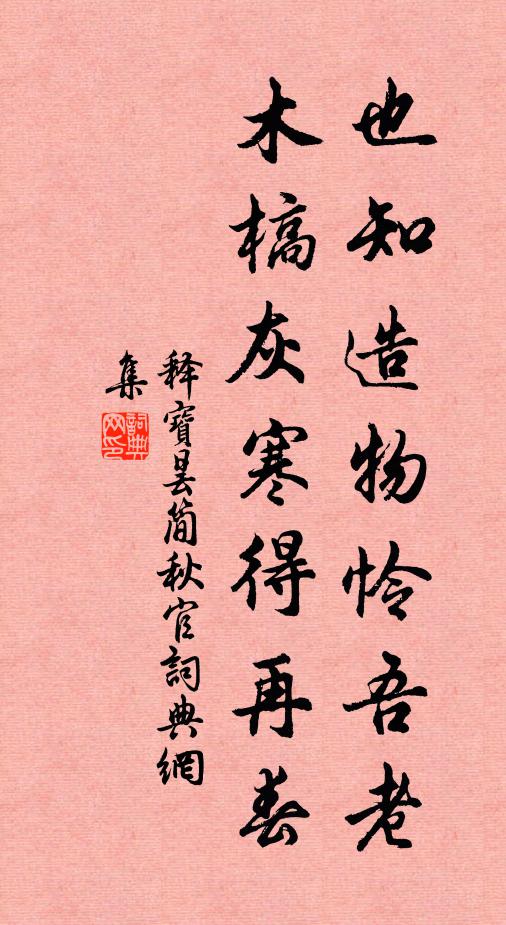 也知造物怜吾老
木槁灰寒得再春
释寶昙简秋官詞典網
集
詞典
网印